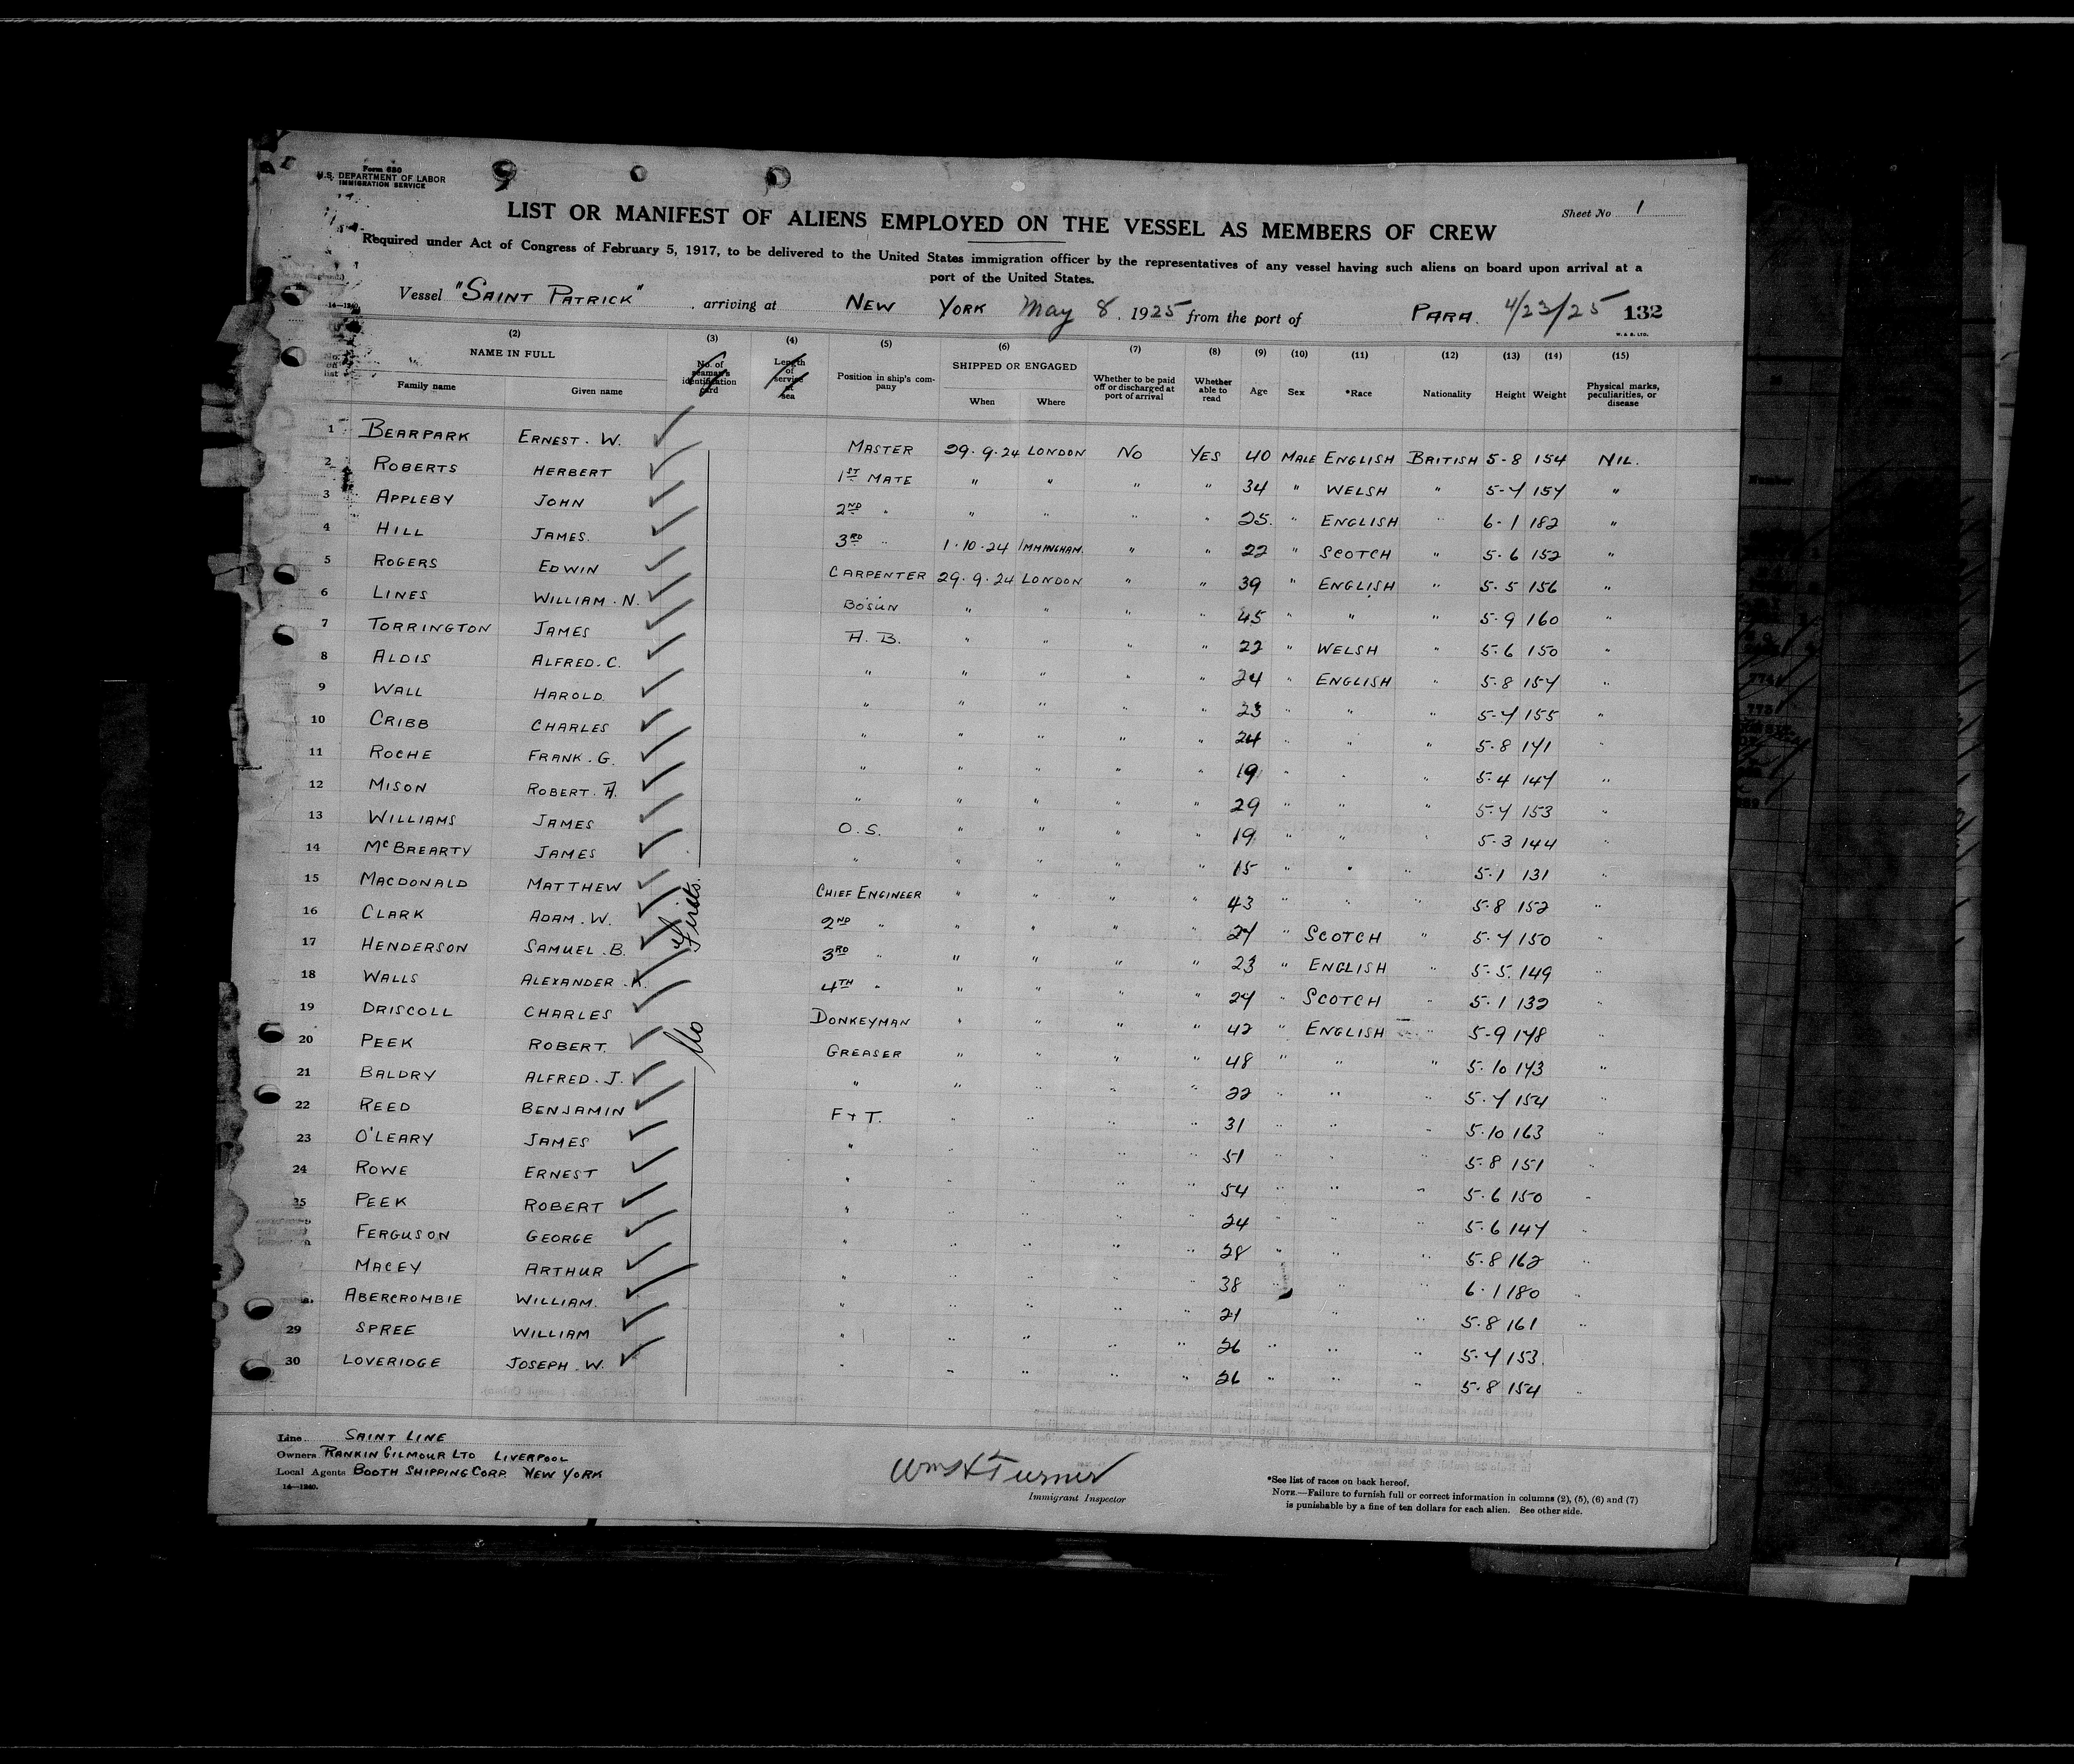 Form 680
U.S. DEPARTMENT OF LABOR
IMMIGRATION SERVICE
Sheet No 1
LIST OR MANIFEST OF ALIENS EMPLOYED ON THE VESSEL AS MEMBERS OF CREW
Required under Act of Congress of February 5, 1917, to be delivered to the United States immigration officer by the representatives of any vessel having such aliens on board upon arrival at a
port of the United States.
Vessel "SAINT PATRICK" arriving at NEW YORK May 8, 1925 from the port of PARA. 4/23/25 132
14—1240
W. & B. LTD.
(2) (3) (4) (5) (6) (7) (8) (9) (10) (11) (12) (13) (14) (15)
No. on list NAME IN FULL Family name Given name No. of seaman's identification card Length of service at sea Position in ship's company SHIPPED OR ENGAGED When Where Whether to be paid off or discharged at port of arrival Whether able to read Age Sex *Race Nationality Height Weight Physical marks, peculiarities, or disease
1 BEARPARK ERNEST. W. ✓ MASTER 29.9.24 LONDON NO YES 40 MALE ENGLISH BRITISH 5-8 154 NIL.
2 ROBERTS HERBERT ✓ 1ST MATE " " " " 34 " WELSH " 5-4 154 "
3 APPLEBY JOHN ✓ 2ND " " " " " 25. " ENGLISH " 6-1 182 "
4 HILL JAMES. ✓ 3RD " 1.10.24 IMMINGHAM. " " 22 " SCOTCH " 5.6 152 "
5 ROGERS EDWIN ✓ CARPENTER 29.9.24 LONDON " " 39 " ENGLISH " 5.5 156 "
6 LINES WILLIAM. N. ✓ BOSUN " " " " 45 " " " 5.9 160 "
7 TORRINGTON JAMES ✓ A. B. " " " " 22 " WELSH " 5.6 150 "
8 ALDIS ALFRED. C. ✓ " " " " " 24 " ENGLISH " 5.8 154 "
9 WALL HAROLD. ✓ " " " " " 23 " " " 5-4 155 "
10 CRIBB CHARLES ✓ " " " " " 24 " " " 5.8 141 "
11 ROCHE FRANK. G. ✓ " " " " " 19 " " " 5.4 144 "
12 MISON ROBERT. A. ✓ " " " " " 29 " " " 5.4 153 "
13 WILLIAMS JAMES ✓ O. S. " " " " 19 " " " 5.3 144 "
14 McBREARTY JAMES ✓ " " " " " 15 " " " 5.1 131 "
15 MACDONALD MATTHEW ✓ CHIEF ENGINEER " " " " 43 " " " 5.8 152 "
16 CLARK ADAM. W. ✓ 2ND " " " " " 24 " SCOTCH " 5.4 150 "
17 HENDERSON SAMUEL. B. ✓ 3RD " " " " " 23 " ENGLISH " 5-5. 149 "
18 WALLS ALEXANDER. K. ✓ 4TH " " " " " 24 " SCOTCH " 5.1 132 "
19 DRISCOLL CHARLES ✓ DONKEYMAN " " " " 42 " ENGLISH " 5-9 148 "
20 PEEK ROBERT. ✓ GREASER " " " " 48 " " " 5.10 143 "
21 BALDRY ALFRED. J. ✓ " " " " " 22 " " " 5.4 154 "
22 REED BENJAMIN ✓ F + T. " " " " 31 " " " 5.10 163 "
23 O'LEARY JAMES ✓ " " " " " 51 " " " 5.8 151 "
24 ROWE ERNEST ✓ " " " " " 54 " " " 5.6 150 "
25 PEEK ROBERT ✓ " " " " " 24 " " " 5.6 144 "
FERGUSON GEORGE ✓ " " " " " 28 " " " 5.8 162 "
MACEY ARTHUR ✓ " " " " " 38 " " " 6.1 180 "
ABERCROMBIE WILLIAM. ✓ " " " " " 21 " " " 5.8 161 "
29 SPREE WILLIAM ✓ " " " " " 26 " " " 5.4 153. "
30 LOVERIDGE JOSEPH. W. ✓ " " " " " 26 " " " 5.8 154 "
No Firsts.
Line SAINT LINE
Owners RANKIN GILMOUR LTD LIVERPOOL
Local Agents BOOTH SHIPPING CORP. NEW YORK
14—1240.
Wm H Turner
Immigrant Inspector
*See list of races on back hereof.
NOTE.—Failure to furnish full or correct information in columns (2), (5), (6) and (7)
is punishable by a fine of ten dollars for each alien. See other side.